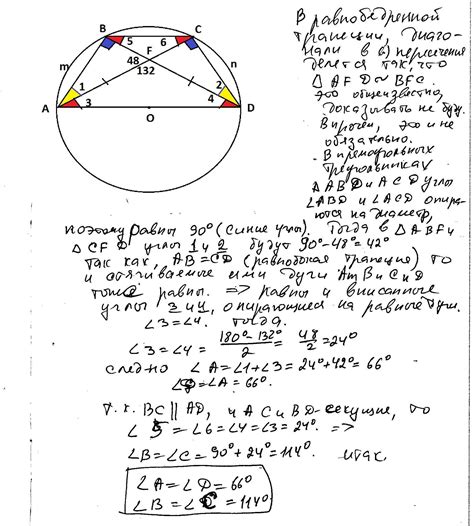 B
C
5
6
F
m
n
48
132
1
2
3
4
A
D
O
В равнобедренной
трапеции, диаго-
нали в (.) пересечения
делятся так, что
△ AFD ∾ BFC.
это общеизвестно,
доказывать не буду.
Впрочем, это и не
обязательно.
В прямоугольных
треугольниках
△ ABD и ACD углы
∠ABD и ∠ACD опира-
ются на диаметр,
поэтому равны 90° (синие углы). Тогда в △ ABF и
△ CFD углы 1 и 2 будут 90°-48°=42°
так как, AB=CD (равнобокая трапеция) то
и стягиваемые ими дуги AmB и CnD
тоже равны. => равны и вписанные
углы 3 и 4, опирающиеся на равные дуги.
∠3=∠4. Тогда.
∠3=∠4= 180°-132° / 2 = 48 / 2 = 24°
следно ∠A=∠1+∠3=24°+42°=66°
∠D=∠A=66°.
т.к. BC ∥ AD, и AC и BD-секущие, то
∠5=∠6=∠4=∠3=24°. =>
∠B=∠C=90°+24°=114°. итак
∠A=∠D=66°
∠B=∠C=114°